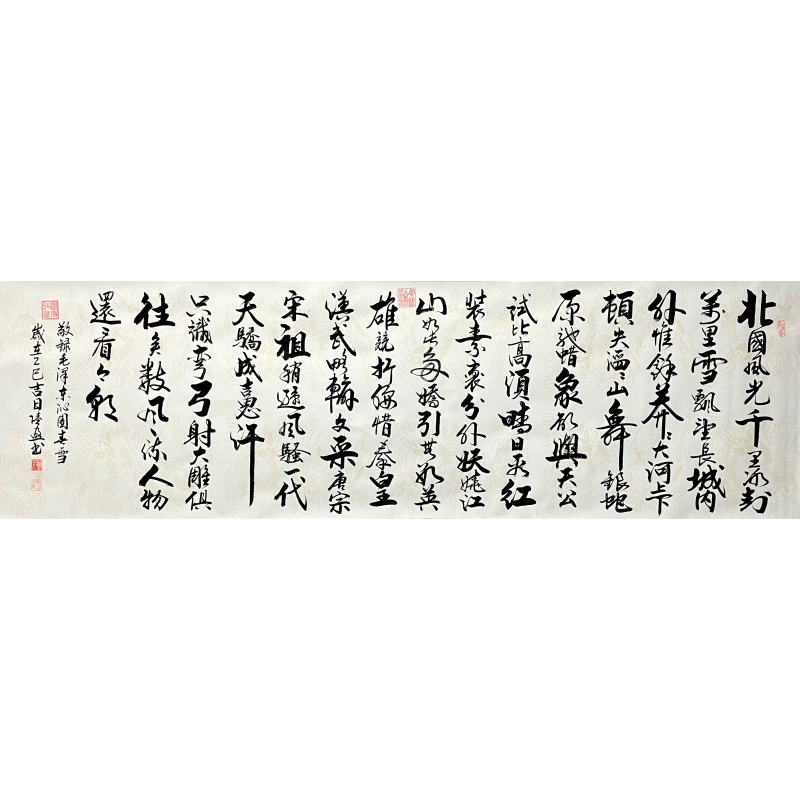 北國風光千里冰封
萬里雪飄望長城內
外惟餘莽〻大河上下
頓失滔〻山舞銀蛇
原馳蜡象欲與天公
試比高須晴日看紅
裝素裹分外妖嬈江
山如此多嬌引無數英
雄競折腰惜秦皇
漢武略輸文采唐宗
宋祖稍遜風騷一代
天驕成吉思汗
只識彎弓射大雕俱
往矣數風流人物
還看今朝
敬録毛澤東沁園春雪
歲在乙巳吉日書